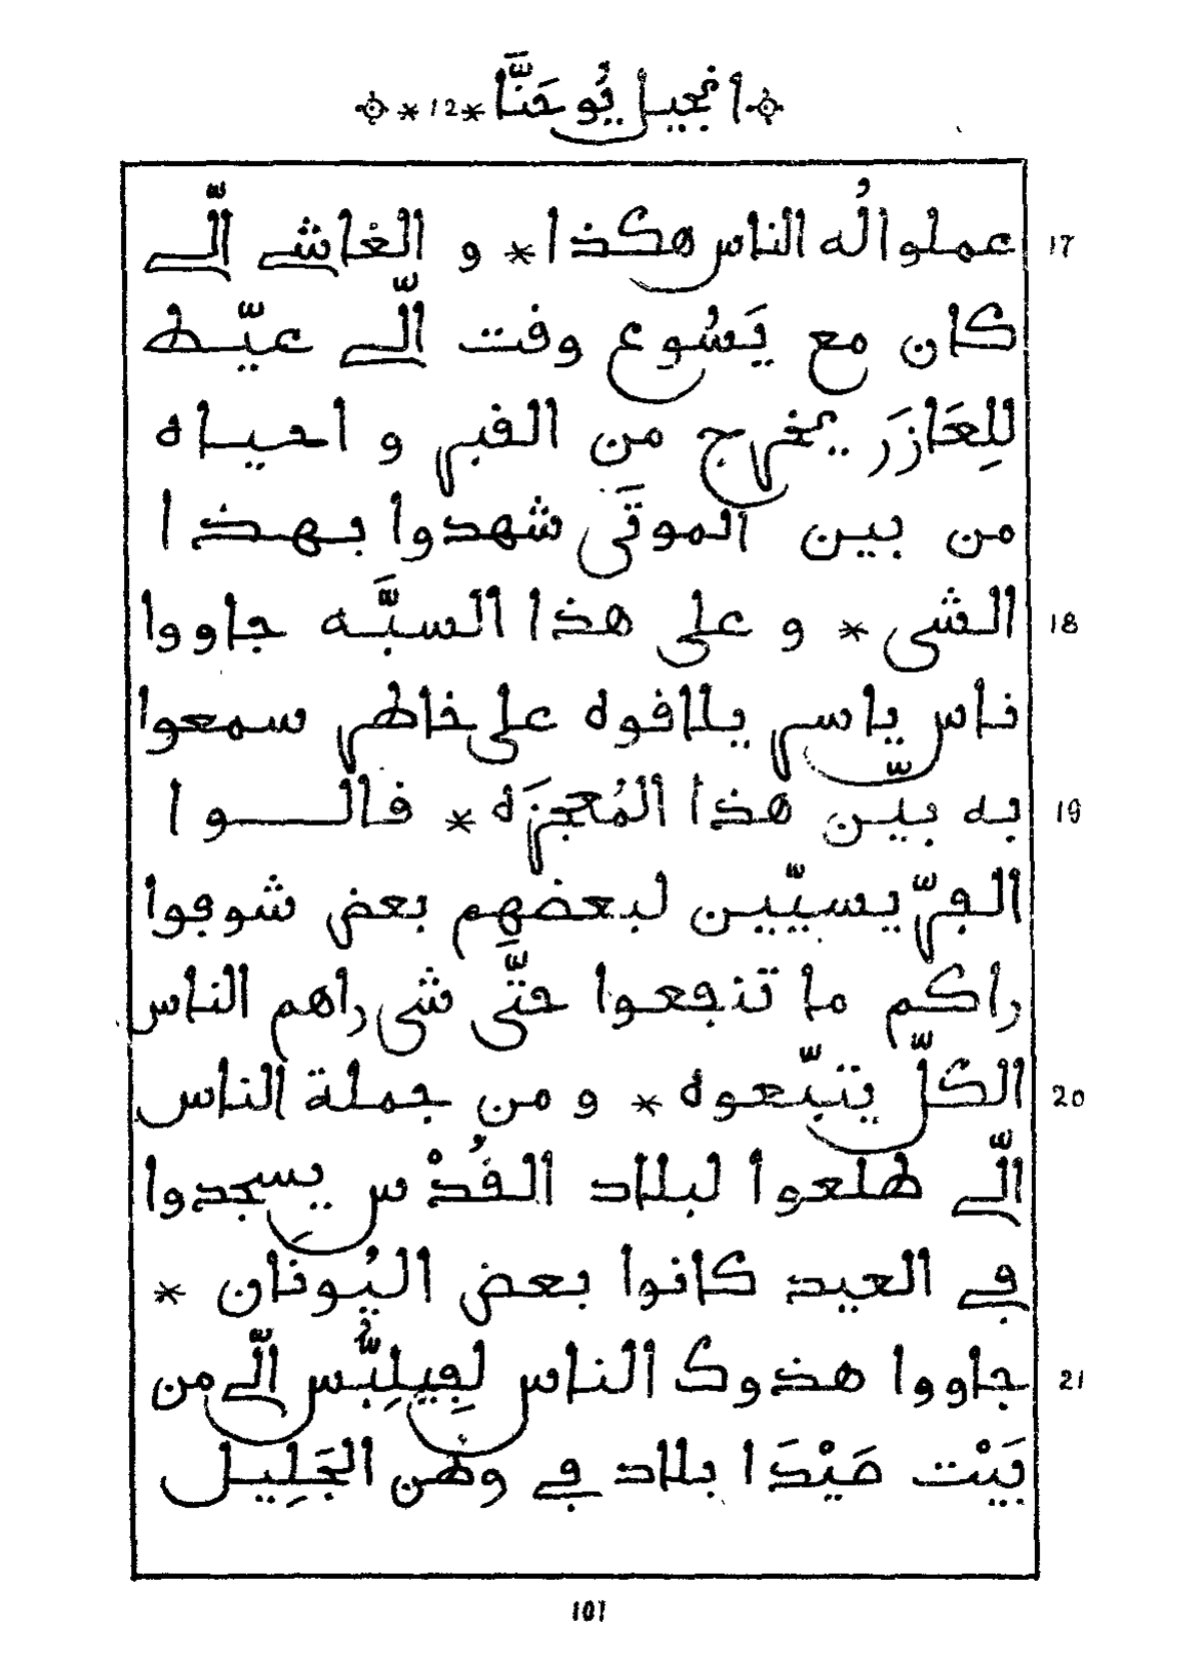 انجيل يُوحَنَّا * 12 *
17 عملوا لُه الناس هكذا * و الغاشي الّي
كان مع يَسُوع وقت الّي عيّط
للِعَازَر يخرج من القبر و احياه
من بين الموتَى شهدوا بهذا
18 الشي * و على هذا السبَّه جاووا
ناس ياسر يلاقوه على خاطر سمعوا
19 به بيّن هذا المُعجزَه * قالوا
الفرّيسيّين لبعضهم بعض شوفوا
راكم ما تنفعوا حتَّى شي راهم الناس
20 الكلّ يتبّعوه * و من جملة الناس
الّي طلعوا لبلاد القُدْس يسجدوا
في العيد كانوا بعض اليُونان *
21 جاووا هذوك الناس لِفيلِبُّس الّي من
بَيْت صَيْدَا بلاد في وطن الجَلِيل
107